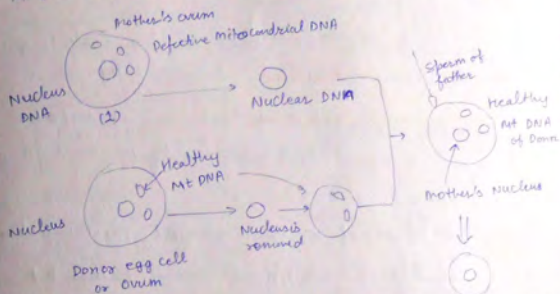 Mother's ovum
Defective Mitocondrial DNA
Nucleus
DNA
(1)
Nuclear DNA
Sperm of
father
Healthy
Mt DNA
of Donor
Mother's Nucleus
Healthy
Mt DNA
Nucleus
Nucleus is
removed
Donor egg cell
or ovum